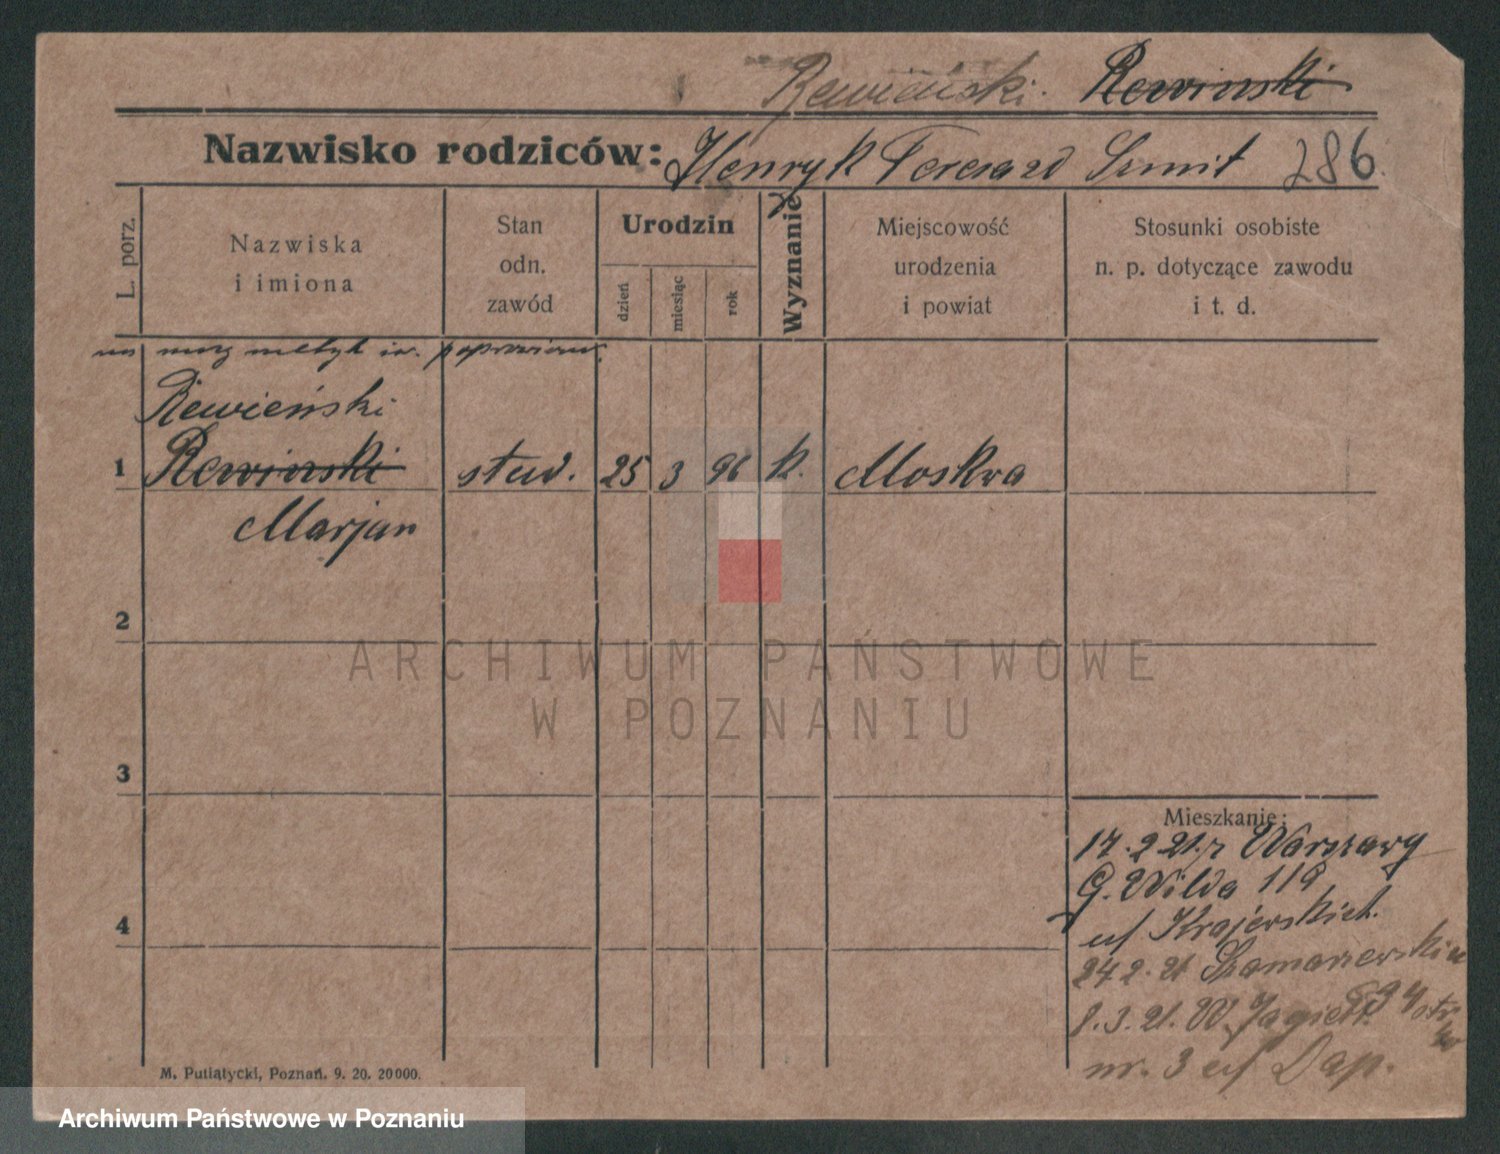 Rewieński Rewinski
Nazwisko rodziców: Henryk Teresa zd Szmit 286
L. porz.
Nazwiska
i imiona
Stan
odn.
zawód
Urodzin
dzień
miesiąc
rok
Wyznanie
Miejscowość
urodzenia
i powiat
Stosunki osobiste
n. p. dotyczące zawodu
i t. d.
na metryk
Rewieński
1 Rewinski stud. 25 3 96 k. Moskwa
Marjan
2
3
4
ARCHIWUM PAŃSTWOWE
W POZNANIU
Mieszkanie:
17.2 21. z Warszawy
G. Wilda 119
u/ Krajerskich.
24 2. 21 Szamarzewskiego
8. 3. 21. W. Jagiełł.
nr. 3 u/ Dap.
M. Putiatycki, Poznań. 9. 20. 20000.
Archiwum Państwowe w Poznaniu